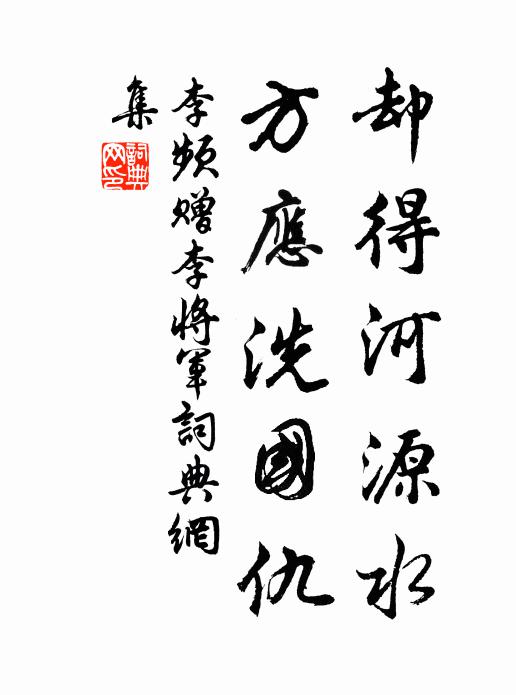 却得河源水
方應洗國仇
李頻贈李將軍詞典網
集
詞典網印